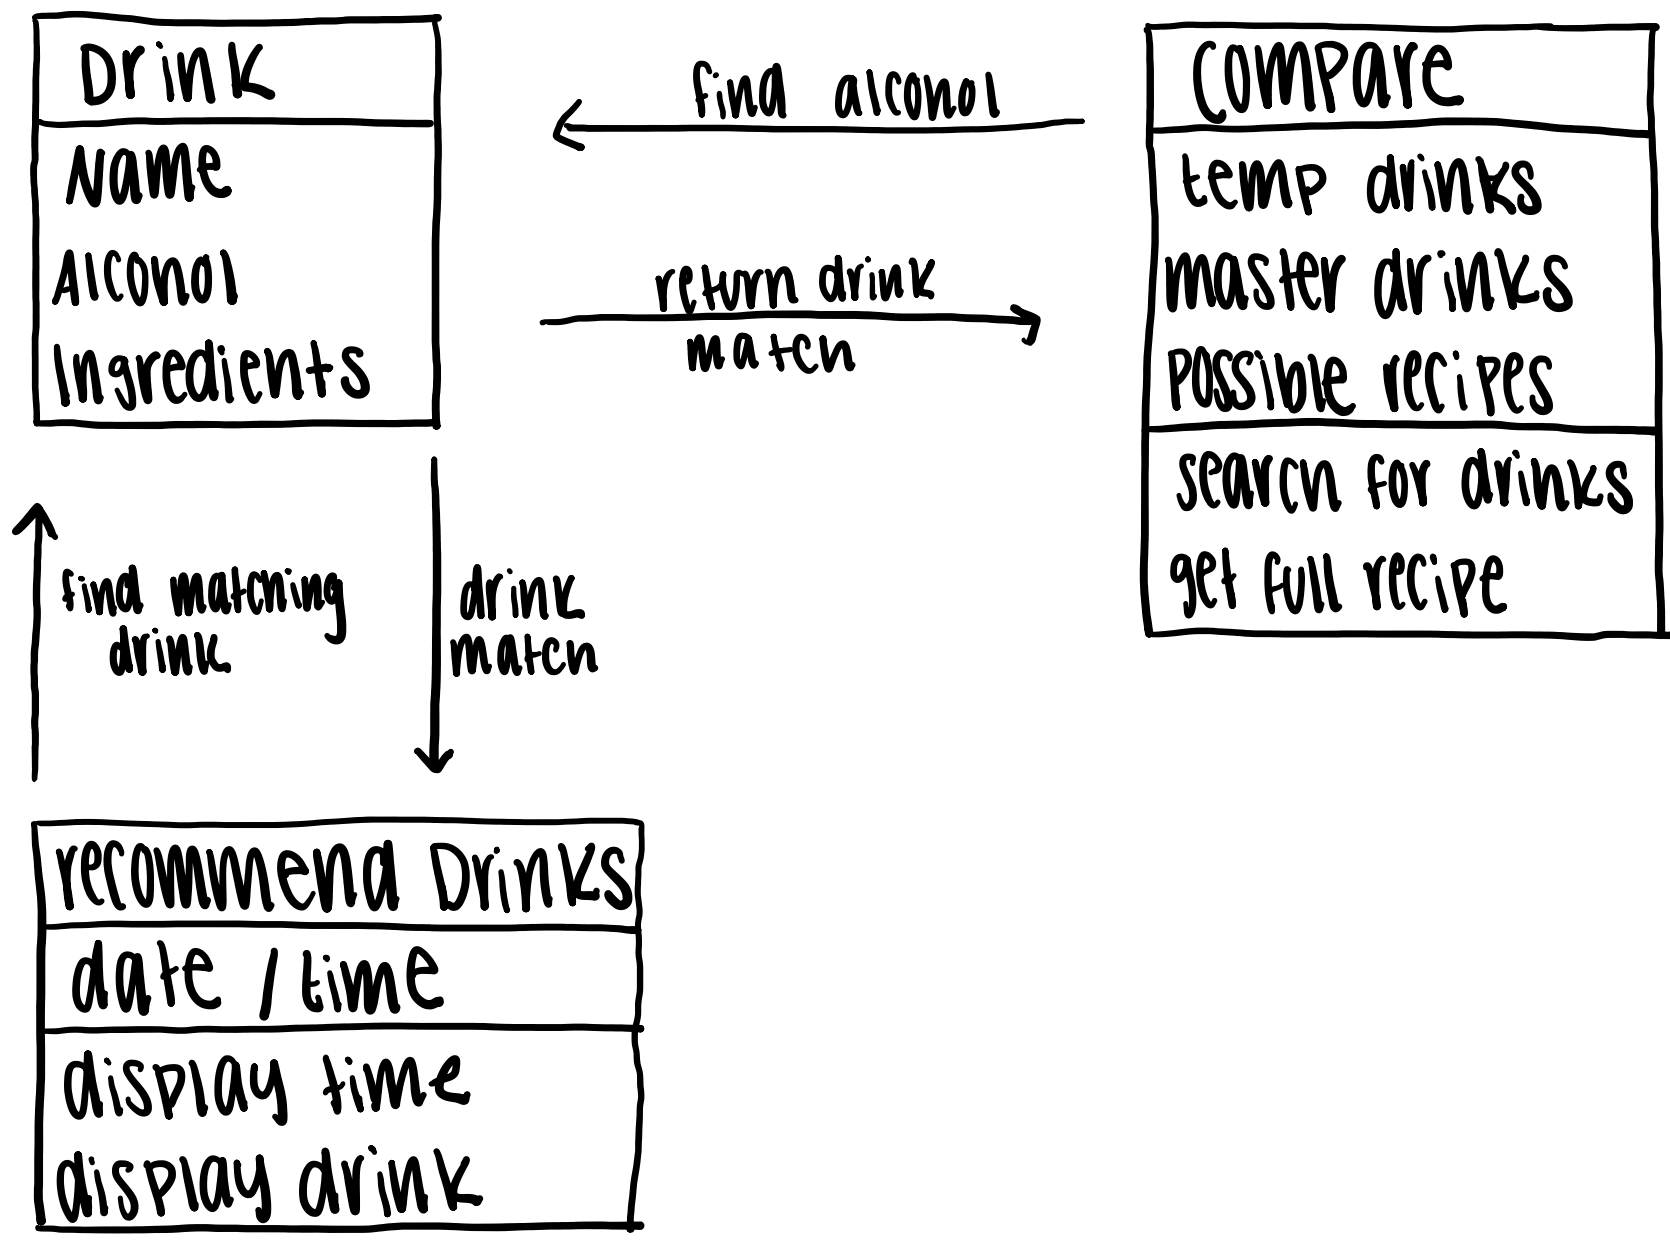 Drink
Name
Alcohol
Ingredients
find alcohol
return drink
match
Compare
temp drinks
master drinks
possible recipes
search for drinks
get full recipe
find matching
drink
drink
match
recommend Drinks
date / time
display time
display drink